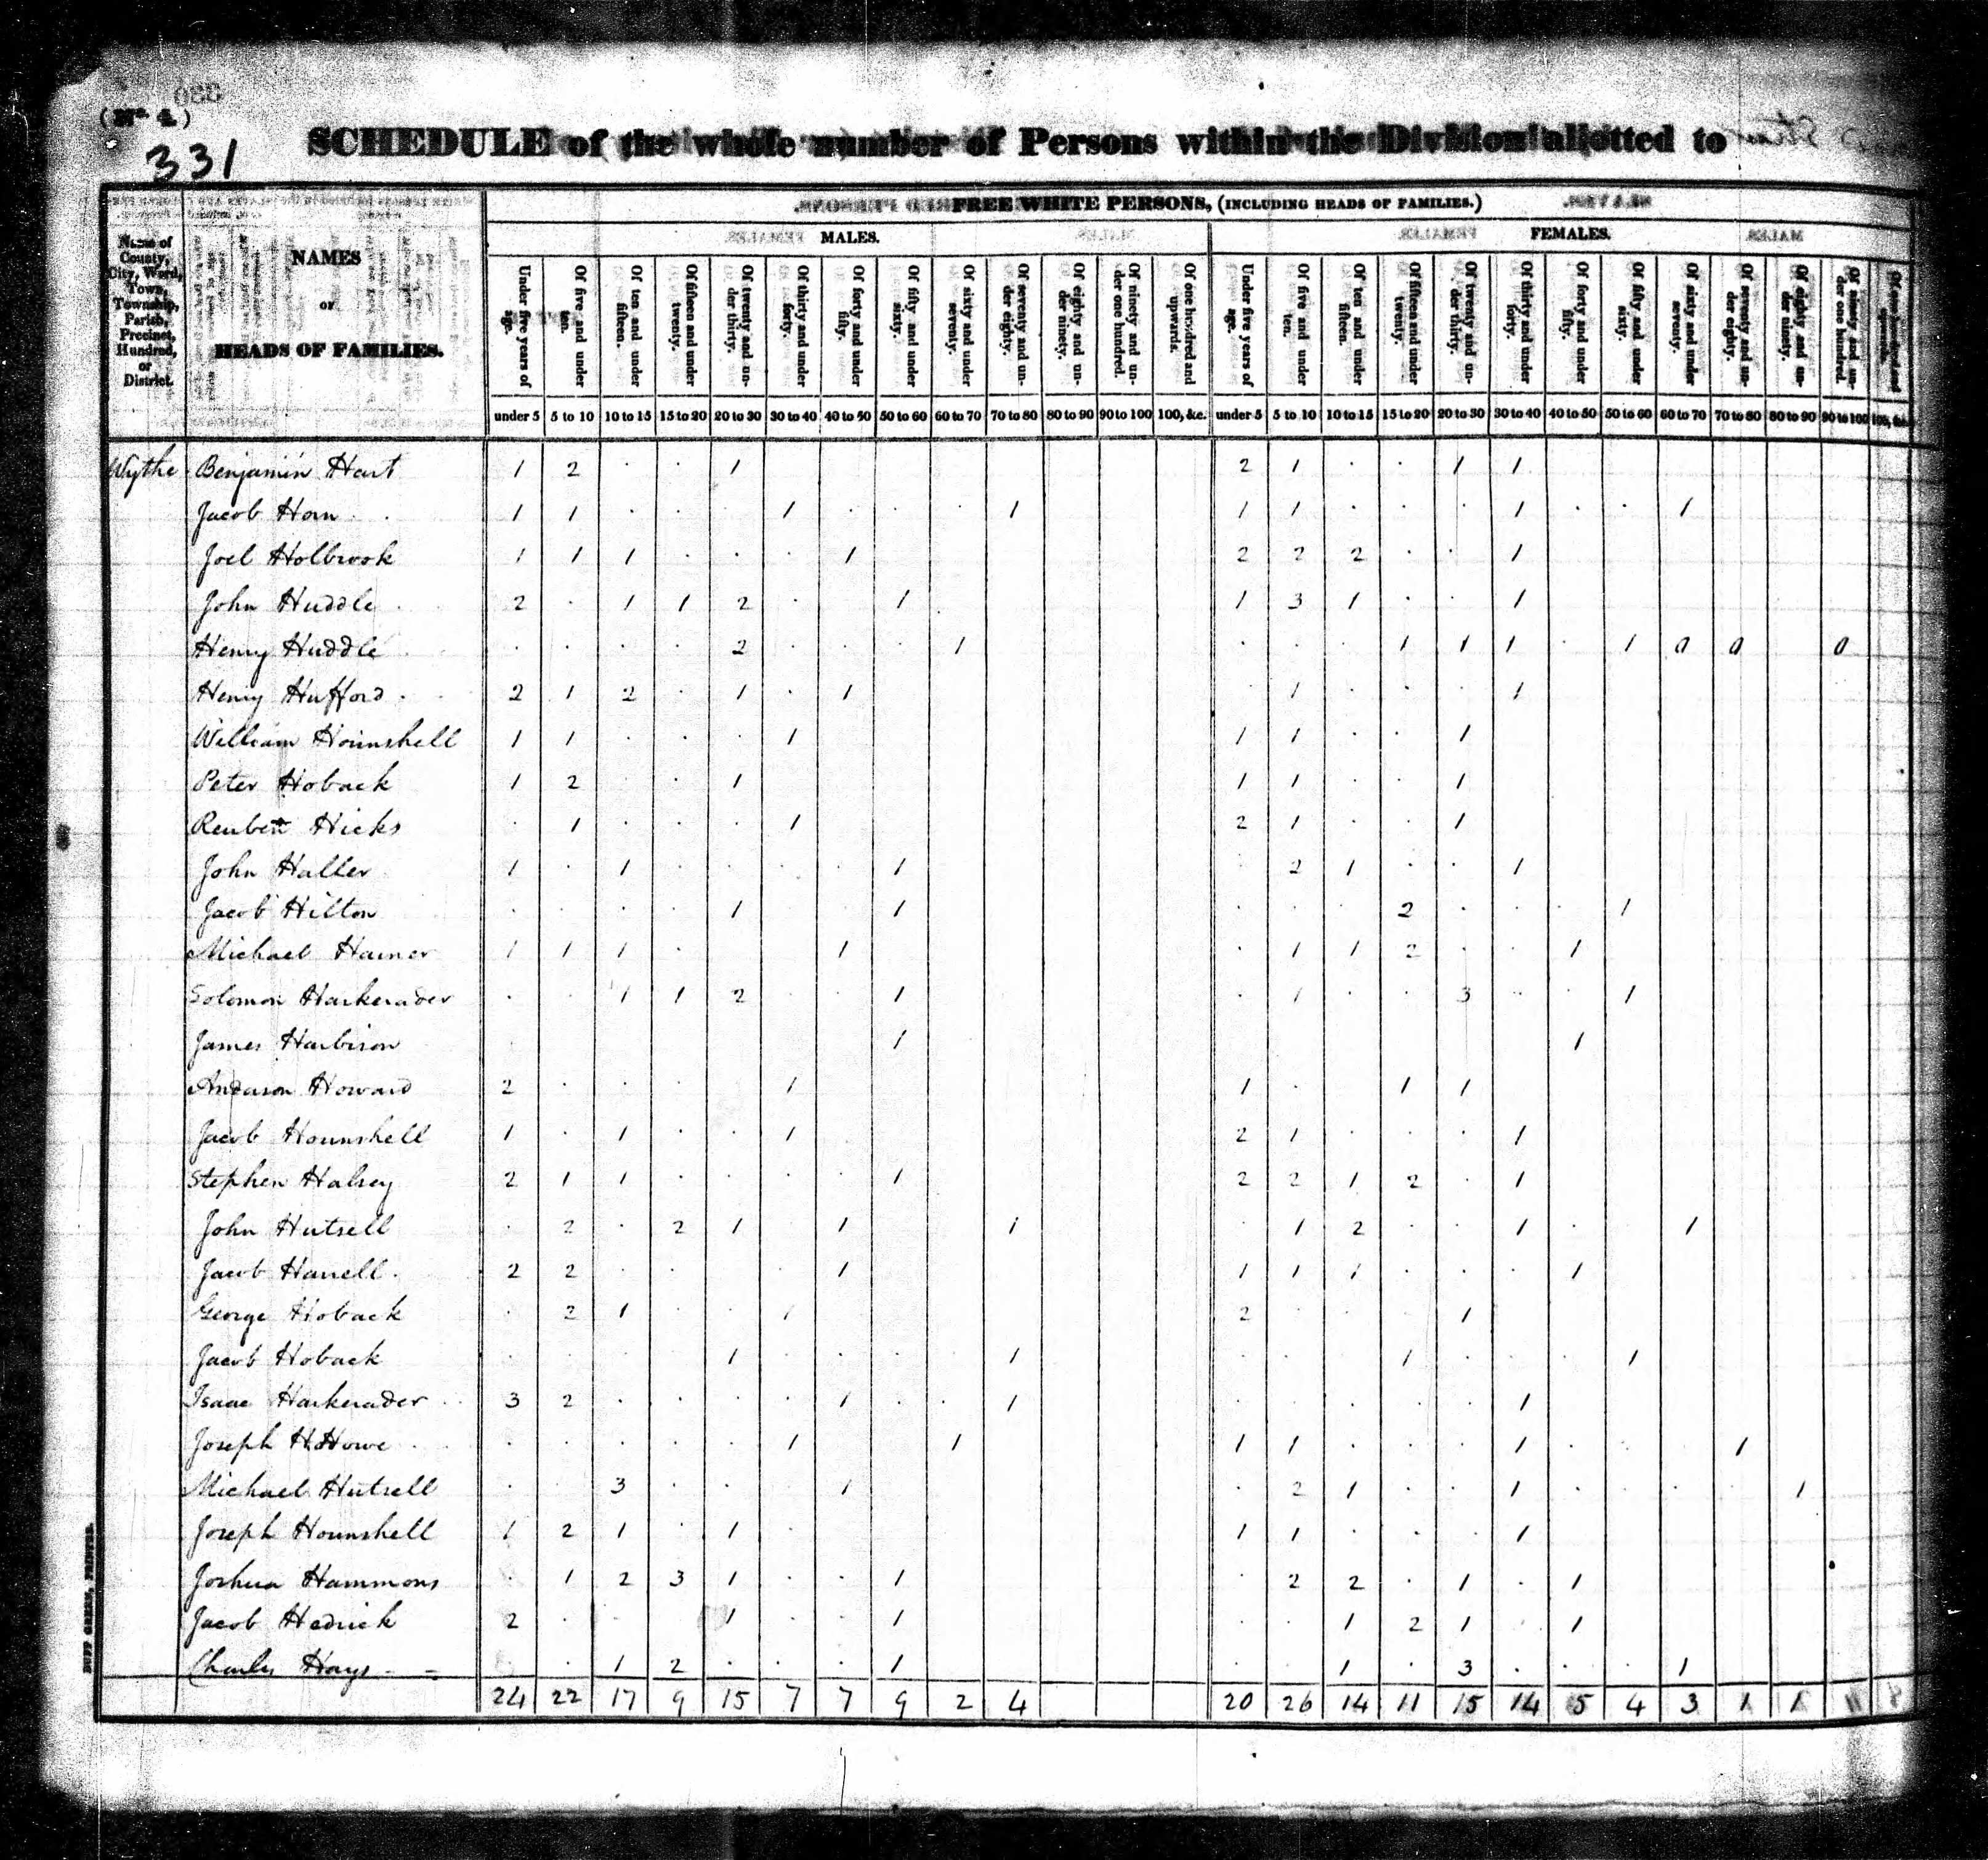 (No. 1.)
331
SCHEDULE of the whole number of Persons within the Division allotted to
FREE WHITE PERSONS, (INCLUDING HEADS OF FAMILIES.)
MALES. FEMALES.
Name of County, City, Ward, Town, Township, Parish, Precinct, Hundred, or District.
NAMES or HEADS OF FAMILIES.
Under five years of age. Of five and under ten. Of ten and under fifteen. Of fifteen and under twenty. Of twenty and under thirty. Of thirty and under forty. Of forty and under fifty. Of fifty and under sixty. Of sixty and under seventy. Of seventy and under eighty. Of eighty and under ninety. Of ninety and under one hundred. Of one hundred and upwards. Under five years of age. Of five and under ten. Of ten and under fifteen. Of fifteen and under twenty. Of twenty and under thirty. Of thirty and under forty. Of forty and under fifty. Of fifty and under sixty. Of sixty and under seventy. Of seventy and under eighty. Of eighty and under ninety. Of ninety and under one hundred. Of one hundred and upwards.
under 5 5 to 10 10 to 15 15 to 20 20 to 30 30 to 40 40 to 50 50 to 60 60 to 70 70 to 80 80 to 90 90 to 100 100, &c. under 5 5 to 10 10 to 15 15 to 20 20 to 30 30 to 40 40 to 50 50 to 60 60 to 70 70 to 80 80 to 90 90 to 100 100, &c.
Wythe Benjamin Hart 1 2 . . 1 2 1 . . 1 1
Jacob Horn 1 1 . . . 1 . . . 1 1 1 . . . 1 . . 1
Joel Holbrook 1 1 1 . . . 1 2 2 2 . . 1
John Huddle 2 . 1 1 2 . . 1 1 3 1 . . 1
Henry Huddle . . . . 2 . . . 1 . . . 1 1 1 . 1 0 0 0
Henry Hufford 2 1 2 . 1 . 1 . 1 . . . 1
William Hounshell 1 1 . . . 1 1 1 . . 1
Peter Hoback 1 2 . . 1 1 1 . . 1
Reuben Hicks . 1 . . . 1 2 1 . . 1
John Haller 1 . 1 . . . . 1 . 2 1 . . 1
Jacob Hilton . . . . 1 . . 1 . . . 2 . . . 1
Michael Hamer 1 1 1 . 1 . 1 1 2 . . 1
Solomon Harkerader . . 1 1 2 . . 1 . 1 . . 3 . . 1
James Harbison . 1 1
Anderson Howard 2 . . . . 1 1 . 1 1
Jacob Hounshell 1 . 1 . . 1 2 1 . . . 1
Stephen Halsey 2 1 1 . . . . 1 2 2 1 2 . 1
John Hutsell . 2 . 2 1 . 1 1 . 1 2 . . 1 . 1
Jacob Harrell 2 2 . . . . 1 1 1 1 . . . 1
George Hoback . 2 1 . . 1 2 . . . 1
Jacob Hoback . . . . 1 . . . . 1 . . . 1 . . . 1
Isaac Harkerader 3 2 . . . . 1 . . 1 . . . . . 1
Joseph H Howe . . . . . 1 . . 1 1 1 . . . 1 . . 1
Michael Hutsell . . 3 . . . 1 . 2 1 . . 1 . . . . 1
Joseph Hounshell 1 2 1 . 1 . 1 1 . . . 1
Joshua Hammons . 1 2 3 1 . . 1 . 2 2 . 1 . 1
Jacob Hedrick 2 . 1 . . 1 . . 1 2 1 . 1
Charles Hays . . 1 2 . . . 1 . . 1 . 3 . . . 1
24 22 17 9 15 7 7 9 2 4 20 26 14 11 15 14 5 4 3 1 1
DUFF GREEN, PRINTER.